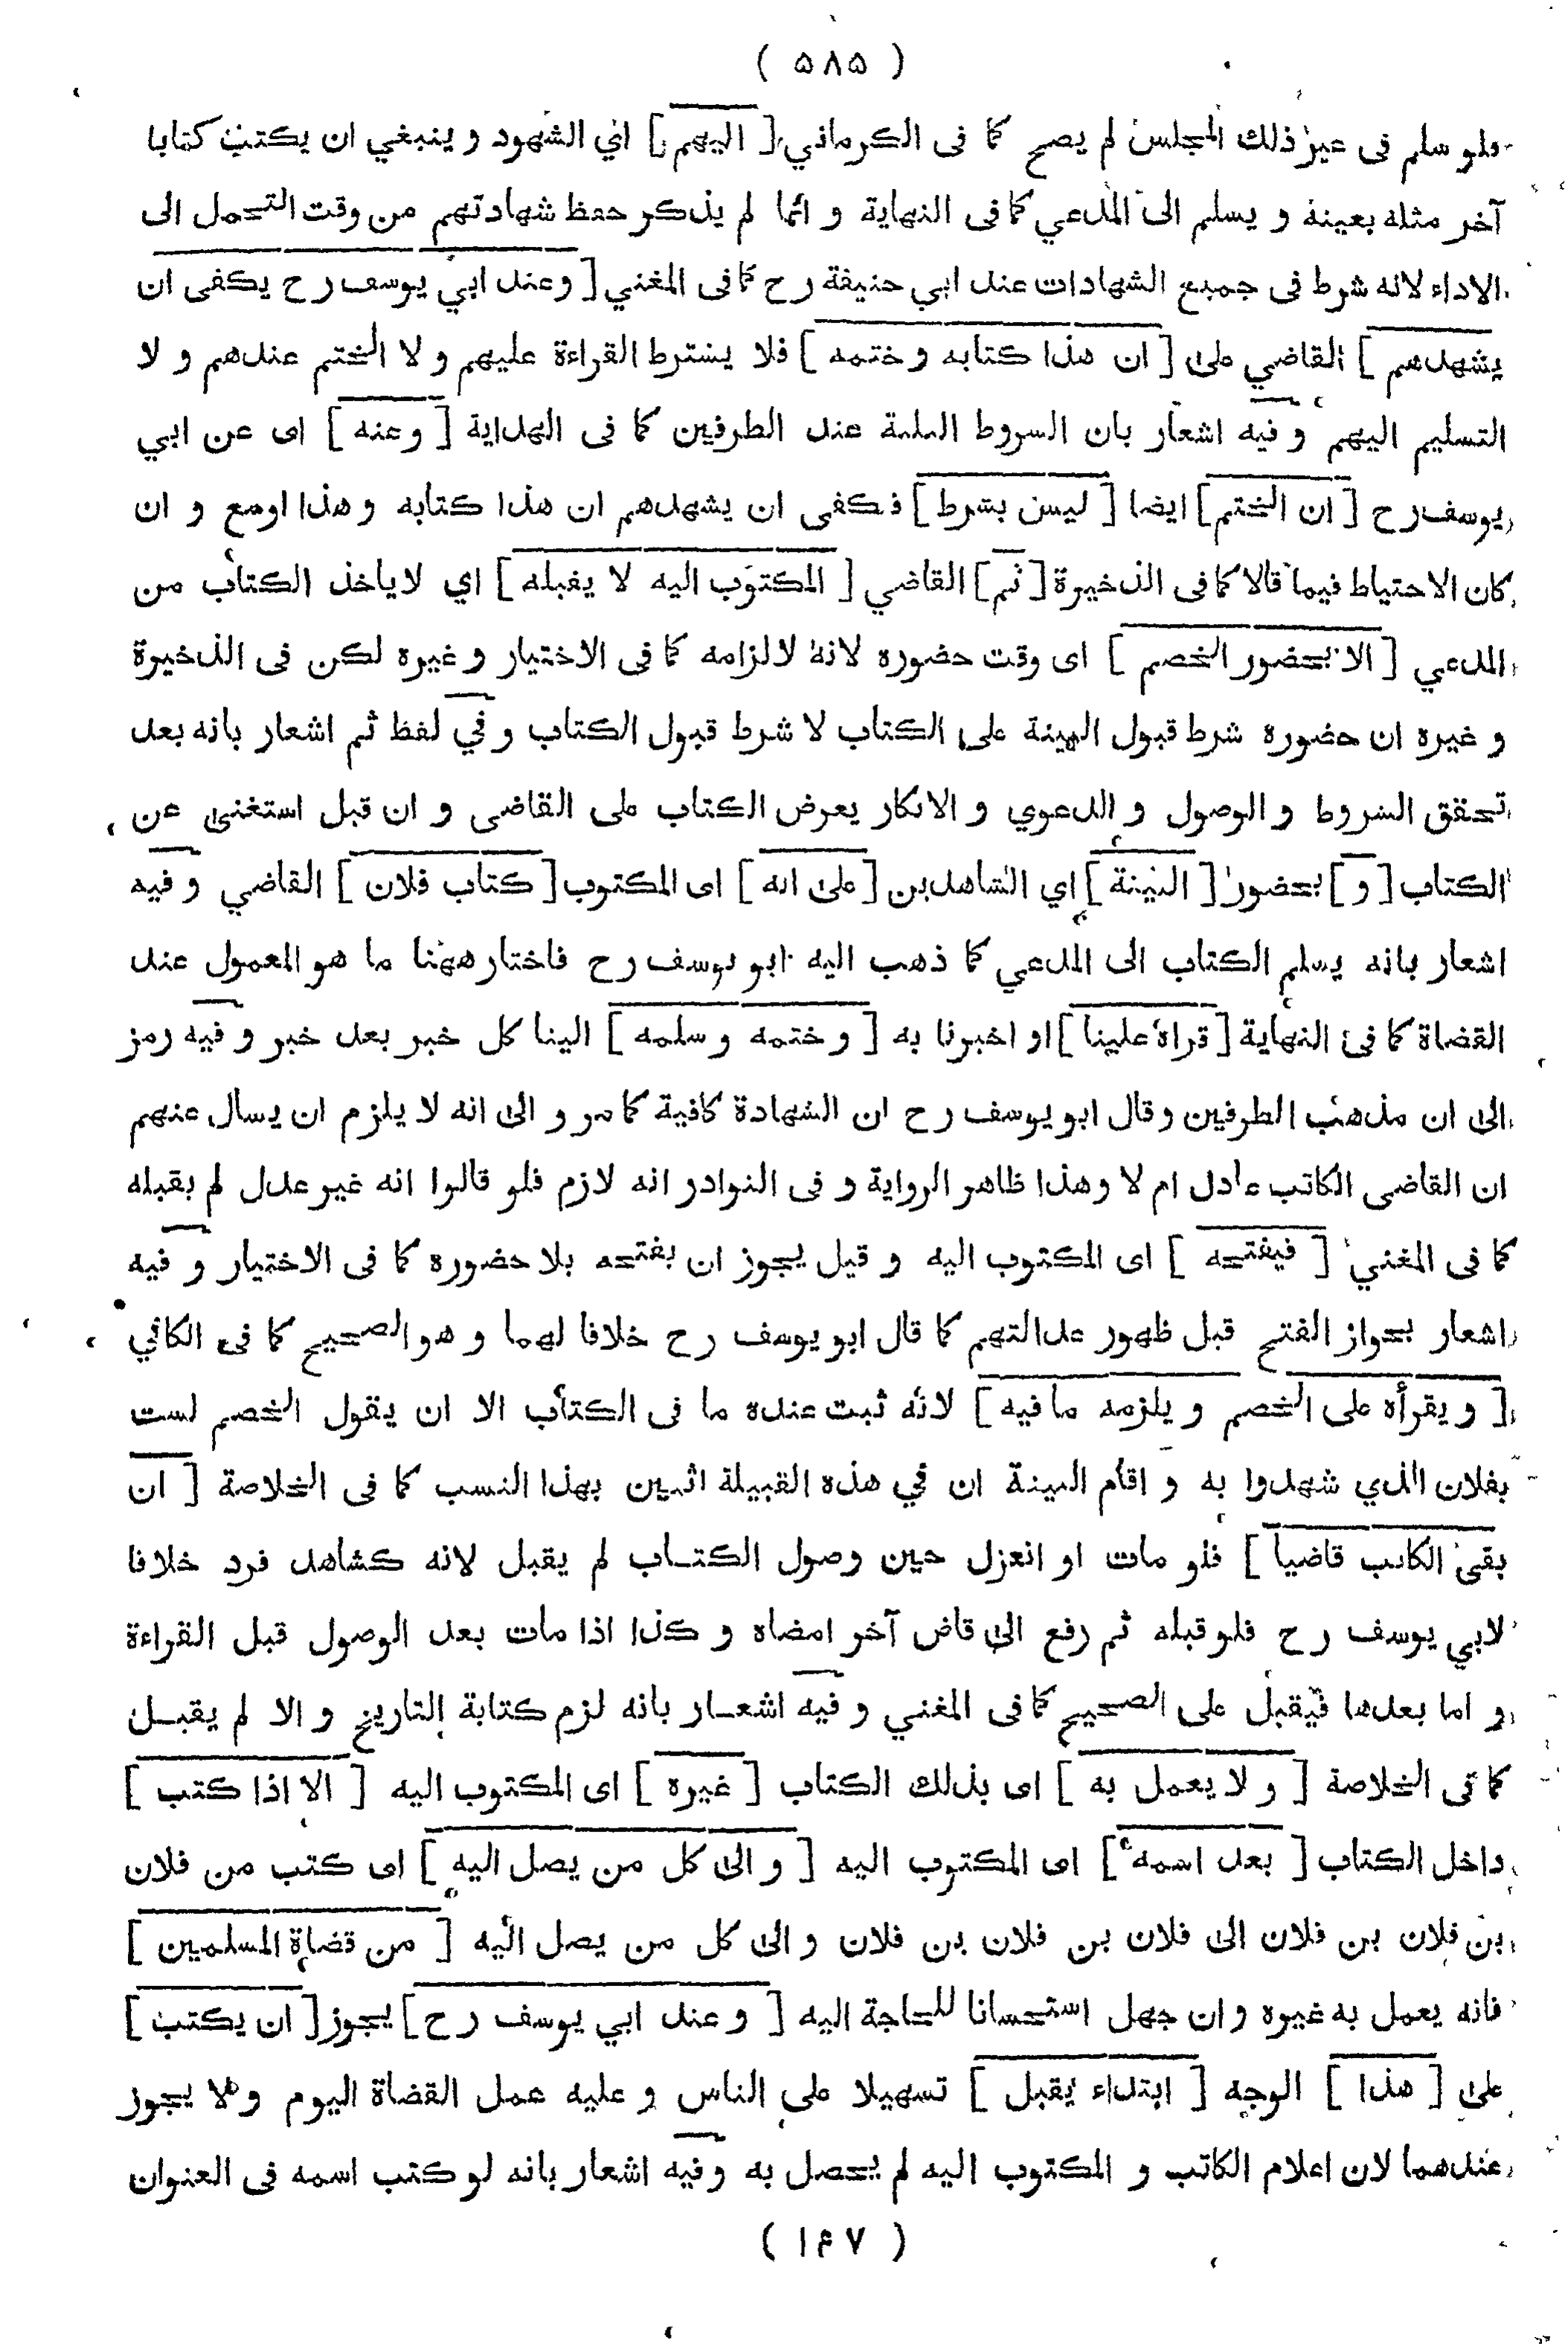 ( ۵۸۵ )
فلو سلم فى غير ذلك المجلس لم يصح كما فى الكرماني [ اليهم ] اي الشهود و ينبغي ان يكتب كتابا
آخر مثله بعينه و يسلم الى المدعي كما فى النهاية و انما لم يذكر حفظ شهادتهم من وقت التحمل الى
الاداء لانه شرط فى جميع الشهادات عند ابي حنيفة رح كما فى المغني [ وعند ابي يوسف رح يكفى ان
يشهدهم ] القاضي على [ ان هذا كتابه وختمه ] فلا يشترط القراءة عليهم و لا الختم عندهم و لا
التسليم اليهم و فيه اشعار بان الشروط الثلثة عند الطرفين كما فى الهداية [ وعنه ] اى عن ابي
يوسف رح [ ان الختم ] ايضا [ ليس بشرط ] فكفى ان يشهدهم ان هذا كتابه وهذا اوسع و ان
كان الاحتياط فيما قالا كما فى الذخيرة [ ثم ] القاضي [ المكتوب اليه لا يقبله ] اي لا ياخذ الكتاب من
المدعي [ الا بحضور الخصم ] اى وقت حضوره لانه لالزامه كما فى الاختيار و غيره لكن فى الذخيرة
و غيره ان حضوره شرط قبول البينة على الكتاب لا شرط قبول الكتاب و في لفظ ثم اشعار بانه بعد
تحقق الشروط و الوصول و الدعوي و الانكار يعرض الكتاب على القاضى و ان قبل استغنى عن
الكتاب [ و ] بحضور [ البينة ] اي الشاهدين [ على انه ] اى المكتوب [ كتاب فلان ] القاضي و فيه
اشعار بانه يسلم الكتاب الى المدعي كما ذهب اليه ابو يوسف رح فاختار ههنا ما هو المعمول عند
القضاة كما فى النهاية [ قراه علينا ] او اخبرنا به [ و ختمه و سلمه ] الينا كل خبر بعد خبر و فيه رمز
الى ان مذهب الطرفين و قال ابو يوسف رح ان الشهادة كافية كما مر و الى انه لا يلزم ان يسأل عنهم
ان القاضى الكاتب عادل ام لا وهذا ظاهر الرواية و فى النوادر انه لازم فلو قالوا انه غير عدل لم يقبله
كما فى المغني [ فيفتحه ] اى المكتوب اليه و قيل يجوز ان يفتحه بلا حضوره كما فى الاختيار و فيه
اشعار بجواز الفتح قبل ظهور عدالتهم كما قال ابو يوسف رح خلافا لهما و هو الصحيح كما فى الكافي
[ و يقرأه على الخصم و يلزمه ما فيه ] لانه ثبت عنده ما فى الكتاب الا ان يقول الخصم لست
بفلان الذي شهدوا به و اقام البينة ان في هذه القبيلة اثنين بهذا النسب كما فى الخلاصة [ ان
بقى الكاتب قاضيا ] فلو مات او انعزل حين وصول الكتاب لم يقبل لانه كشاهد فرد خلافا
لابي يوسف رح فلو قبله ثم رفع الى قاض آخر امضاه و كذا اذا مات بعد الوصول قبل القراءة
و اما بعدها فيقبل على الصحيح كما فى المغني و فيه اشعار بانه لزم كتابة التاريخ و الا لم يقبل
كما فى الخلاصة [ و لا يعمل به ] اى بذلك الكتاب [ غيره ] اى المكتوب اليه [ الا اذا كتب ]
داخل الكتاب [ بعد اسمه ] اى المكتوب اليه [ و الى كل من يصل اليه ] اى كتب من فلان
بن فلان بن فلان الى فلان بن فلان بن فلان و الى كل من يصل اليه [ من قضاة المسلمين ]
فانه يعمل به غيره و ان جهل استحسانا للحاجة اليه [ و عند ابي يوسف رح ] يجوز [ ان يكتب ]
على [ هذا ] الوجه [ ابتداء يقبل ] تسهيلا على الناس و عليه عمل القضاة اليوم و لا يجوز
عندهما لان اعلام الكاتب و المكتوب اليه لم يحصل به و فيه اشعار بانه لو كتب اسمه فى العنوان
( ۱۴۷ )